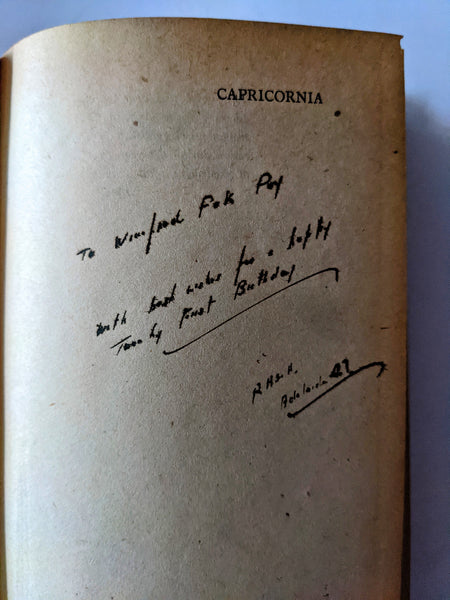 CAPRICORNIA
To Winifred Fok Poy
With best wishes for a happy
Twenty First Birthday
Adelaide